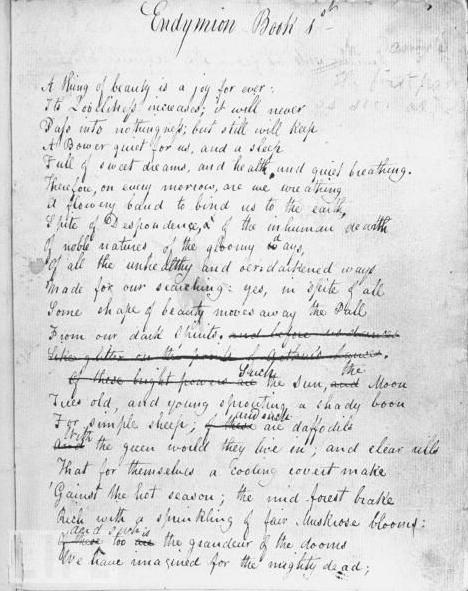 Endymion Book 1st
A thing of beauty is a joy for ever:
Its Loveliness increases; it will never
Pass into nothingness; but still will keep
A Bower quiet for us, and a sleep
Full of sweet dreams, and health, and quiet breathing.
Therefore, on every morrow, are we wreathing
A flowery band to bind us to the earth,
Spite of Despondence, of the inhuman dearth
Of noble natures, of the gloomy days,
Of all the unhealthy and oer-darkened ways
Made for our searching: yes, in spite of all
Some shape of beauty moves away the Pall
From our dark Spirits. and before us dances
Like glitter on the points of Arthur's Lances.
Of these bright powers are Such the Sun, and the Moon
Trees old, and young sprouting a shady boon
For simple sheep; of these and such are daffodils
and with the green world they live in; and clear rills
That for themselves a cooling covert make
'Gainst the hot season; the mid forest brake
Rich with a sprinkling of fair Muskrose blooms:
Of these and such too are is the grandeur of the dooms
We have imagined for the mighty dead;
LIFE